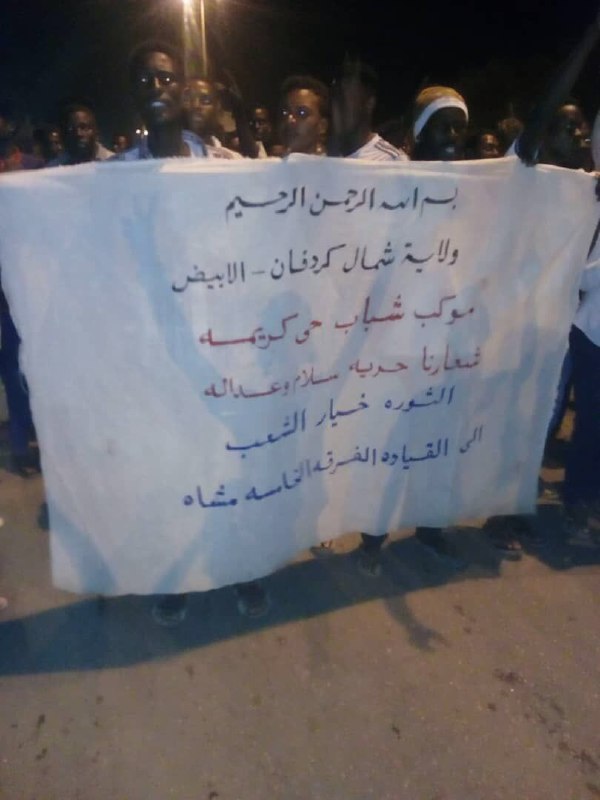 بسم الله الرحمن الرحيم
ولاية شمال كردفان - الابيض
موكب شباب حى كريمه
شعارنا حريه سلام وعداله
الثوره خيار الشعب
الى القياده الفرقه الخامسه مشاه